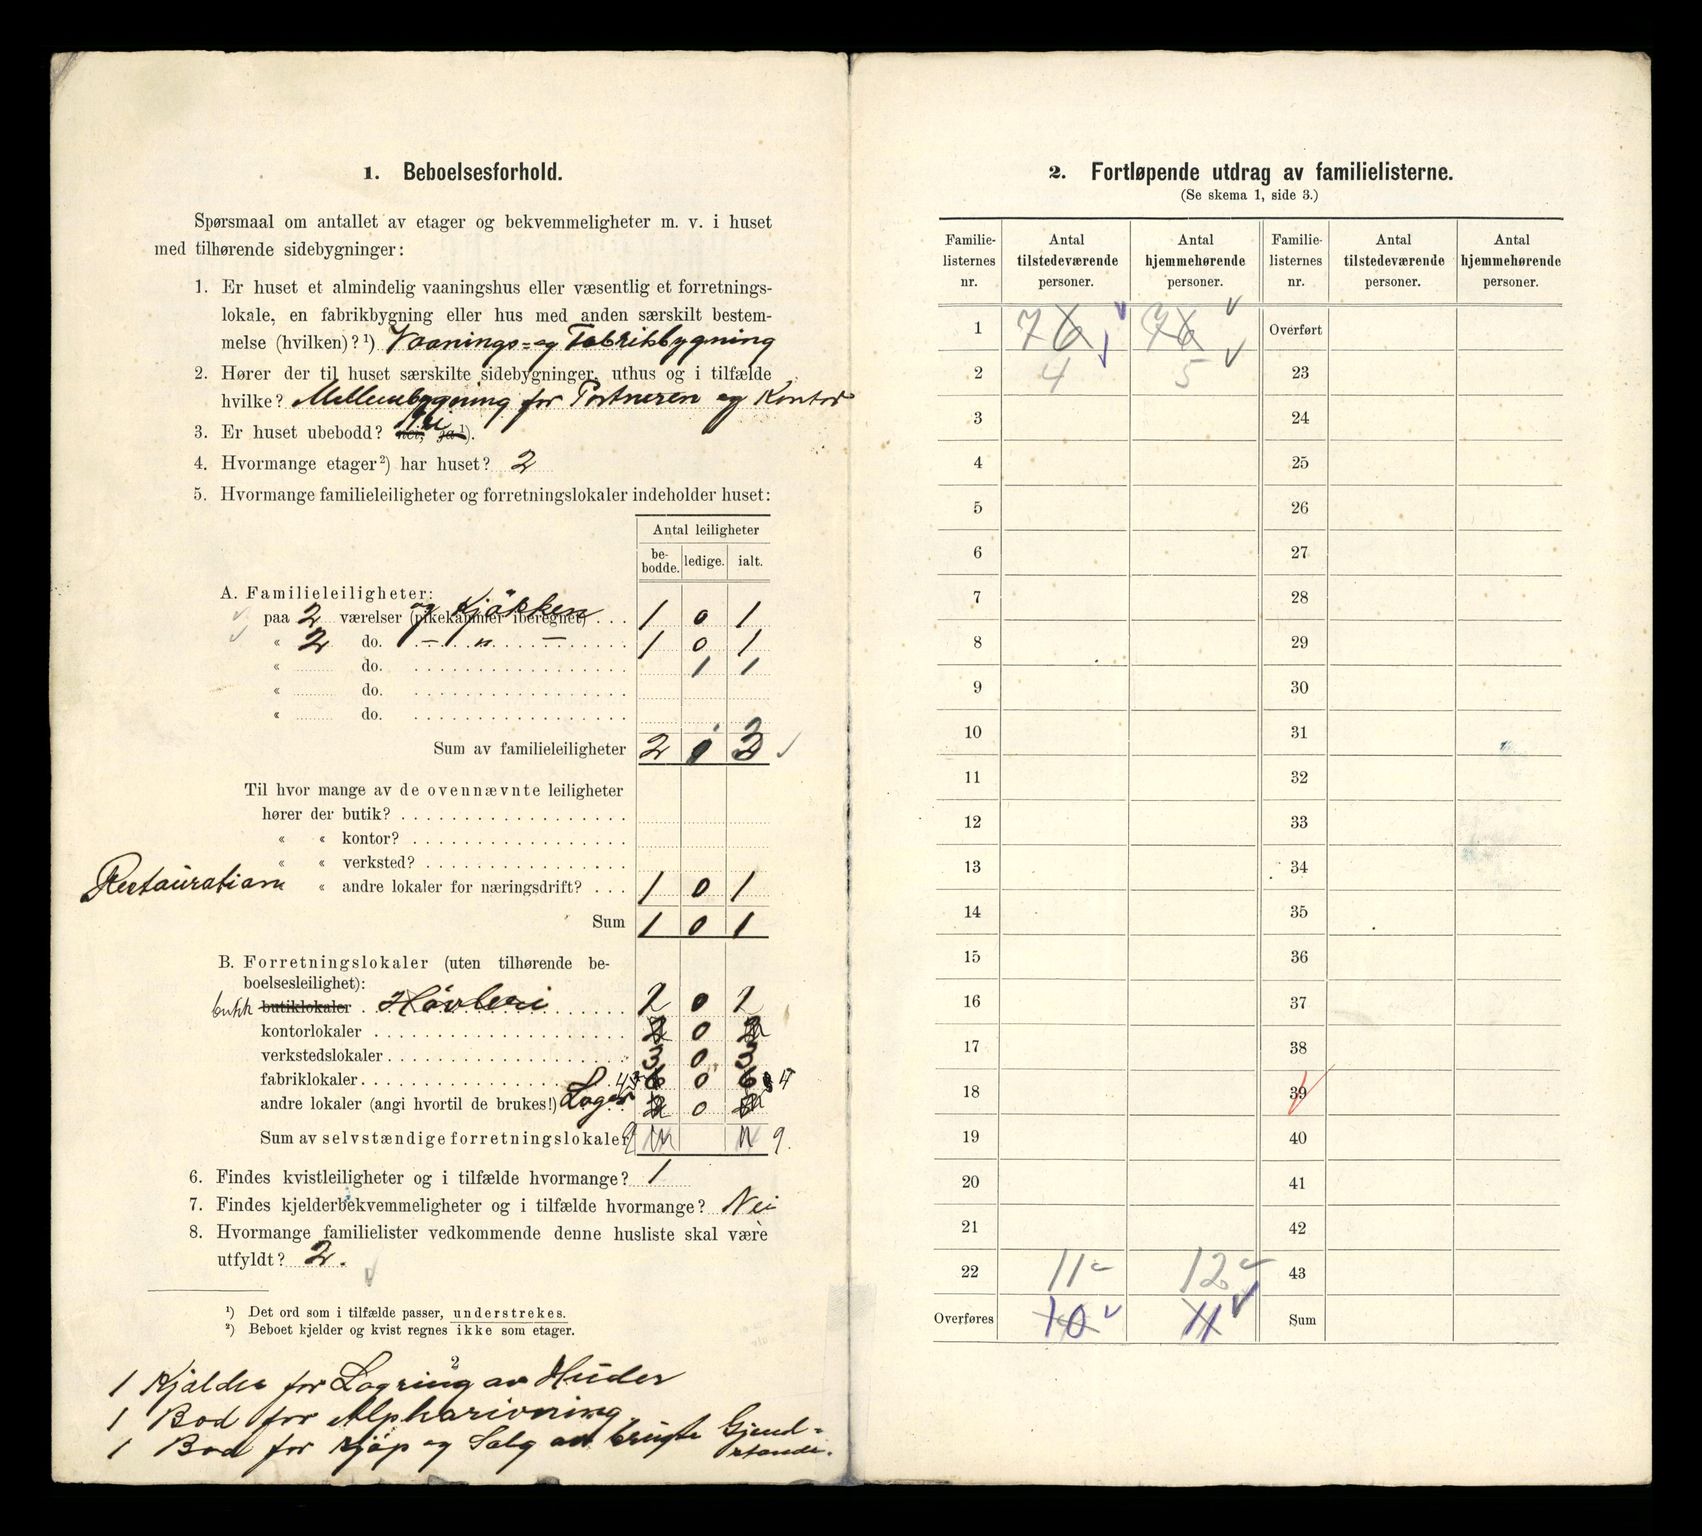 1. Beboelsesforhold.
Spørsmaal om antallet av etager og bekvemmeligheter m. v. i huset
med tilhørende sidebygninger:
1. Er huset et almindelig vaaningshus eller væsentlig et forretnings-
lokale, en fabrikbygning eller hus med anden særskilt bestem-
melse (hvilken)?¹) Vaanings- og Fabrikbygning
2. Hører der til huset særskilte sidebygninger, uthus og i tilfælde
hvilke? Mellembygning for Portneren og Kontor
3. Er huset ubebodd? nei, ja¹). Nei
4. Hvormange etager²) har huset? 2
5. Hvormange familieleiligheter og forretningslokaler indeholder huset:
Antal leiligheter
be-bodde. ledige. ialt.
A. Familieleiligheter:
paa 2 værelser (pikekammer iberegnet) og Kjökken 1 0 1
« 2 do. — „ — 1 0 1
« do. 1 1
« do.
« do.
Sum av familieleiligheter 2 1 3
Til hvor mange av de ovennævnte leiligheter
hører der butik?
« « kontor?
« « verksted?
Restauration « andre lokaler for næringsdrift? 1 0 1
Sum 1 0 1
B. Forretningslokaler (uten tilhørende be-
boelsesleilighet):
butikk butiklokaler Høvleri 2 0 2
kontorlokaler 0
verkstedslokaler 3 0 3
fabriklokaler 6 0 6
andre lokaler (angi hvortil de brukes!) Lager 0
Sum av selvstændige forretningslokaler 9 9.
6. Findes kvistleiligheter og i tilfælde hvormange? 1
7. Findes kjelderbekvemmeligheter og i tilfælde hvormange? Nei
8. Hvormange familielister vedkommende denne husliste skal være
utfyldt? 2.
¹) Det ord som i tilfælde passer, understrekes.
²) Beboet kjelder og kvist regnes ikke som etager.
2
1 Kjælder for Lagring av Huder
1 Bod for
1 Bod for Kjöp og Salg av brugte Gjend-
stande.
2. Fortløpende utdrag av familielisterne.
(Se skema 1, side 3.)
Familie-listernes nr. Antal tilstedeværende personer. Antal hjemmehørende personer. Familie-listernes nr. Antal tilstedeværende personer. Antal hjemmehørende personer.
1 7 6 7 6 Overført
2 4 5 23
3 24
4 25
5 26
6 27
7 28
8 29
9 30
10 31
11 32
12 33
13 34
14 35
15 36
16 37
17 38
18 39
19 40
20 41
21 42
22 11 12 43
Overføres 10 11 Sum